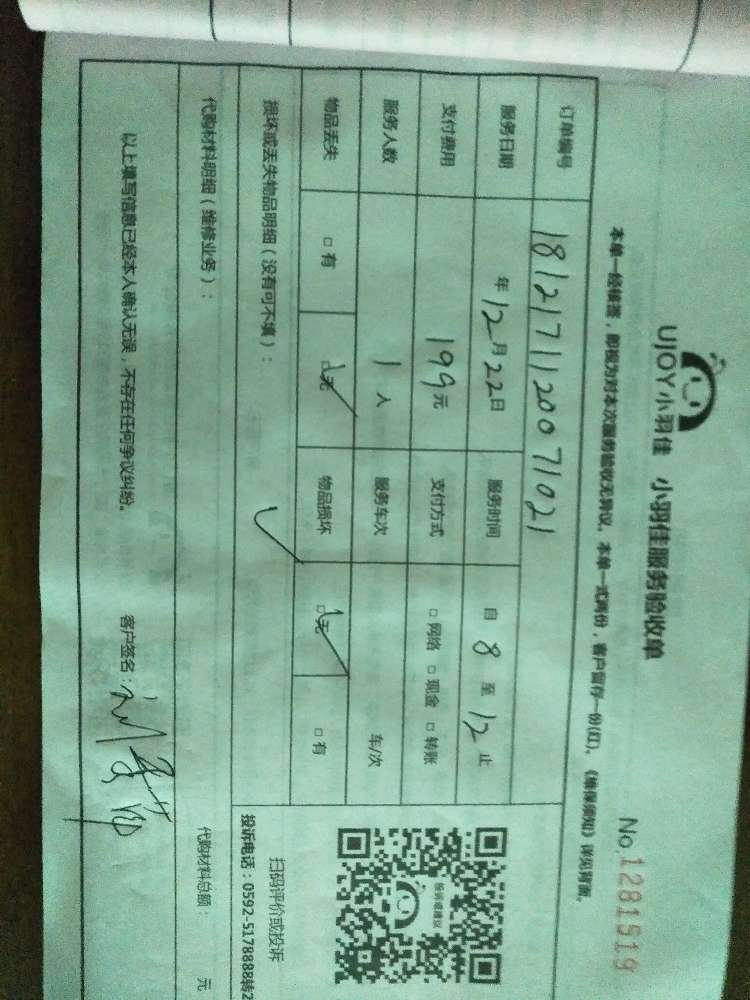 UJOY小羽佳 小羽佳服务验收单
No 1281519
本单一经核签，即视为对本次服务验收无异议。本单一式两份，客户留存一份(红)。《维保须知》详见背面。
订单编号 181217112007 1021
服务日期 年12月22日 服务时间 自 8 至 12 止
支付费用 199元 支付方式 □ 网络 □ 现金 □ 转账
服务人数 1 人 服务车次 车/次
物品丢失 □ 有 □ 无 物品损坏 □ 无 □ 有
损坏或丢失物品明细（没有可不填）：
投诉或建议
扫码评价或投诉
投诉电话：0592-5178888转2
代购材料明细（维修业务）： 代购材料总额： 元
以上填写信息已经本人确认无误，不存在任何争议纠纷。 客户签名：